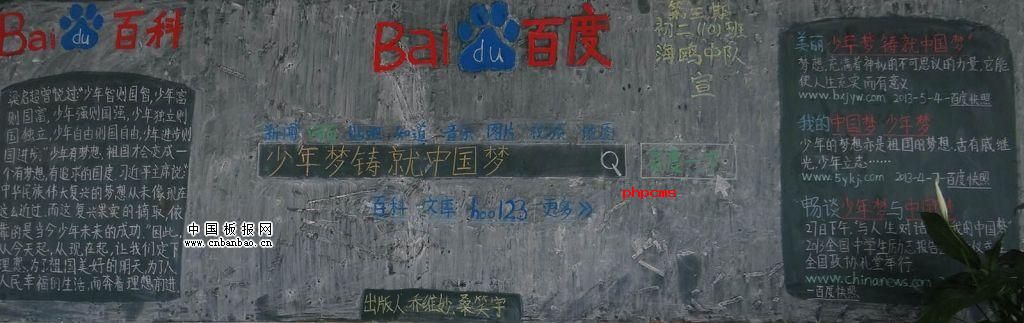 Bai du 百科
梁启超曾说过“少年智则国智，少年富
则国富，少年强则国强，少年独立则
国独立，少年自由则国自由，少年进步则
国进步。”少年有梦想，祖国才会变成一
个有梦想，有追求的国度，习近平主席说：“
中华民族伟大复兴的梦想从未像现在
这么近过，而这复兴果实的摘取，依
靠的是当今少年未来的成功。”因此，
从今天起，从现在起，让我们定下
理想，为了祖国美好的明天，为了人
人民幸福的生活，而奔着理想前进
中国板报网
www.cnbanbao.cn
Bai du 百度
第三期
初二(10)班
海鸥中队
宣
新闻 网页 贴吧 知道 音乐 图片 视频 地图
少年梦铸就中国梦
百度一下
phpcms
百科 文库 hao123 更多>>
出版人:乔维 桑笑宇
美丽少年梦铸就中国梦
梦想，充满着神秘的不可思议的力量，它能
使人生充实而有意义
www.bxjyw.com 2013-5-4-百度快照
我的中国梦 少年梦
少年的梦想亦是祖国的梦想，古有戚继
光，少年立志……
www.5ykj.com 2013-4-7-百度快照
畅谈少年梦与中国梦
27日下午，“与人生对话 我的中国梦
2013全国中学生励志报告
全国政协礼堂举行
www.chinanews.com
-百度快照